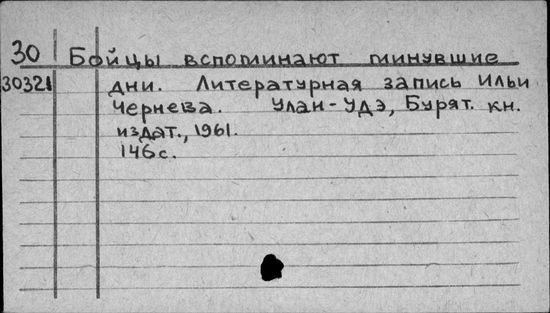 30 Бойцы вспоминают минувшие
30321 дни. Литературная запись Ильи
Чернева. Улан-Удэ, Бурят. кн.
издат., 1961.
146 с.